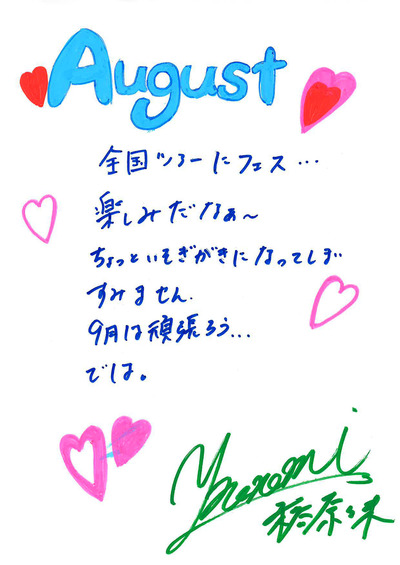 August
全国ツアーにフェス…
楽しみだなぁ〜
ちょっといそぎがきになってしまい
すみません.
9月は頑張ろう...
では。